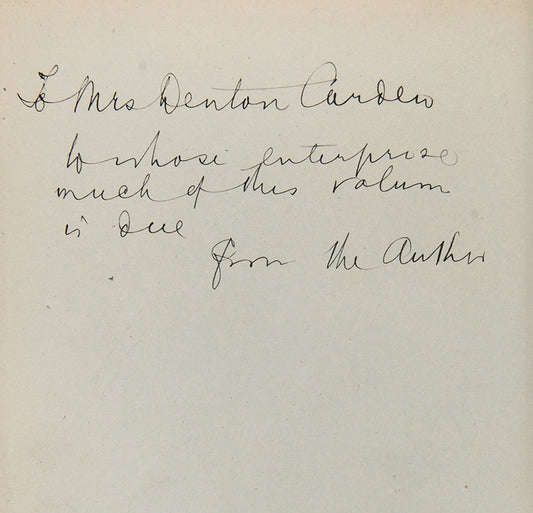 To Mrs Denton Carden
to whose enterprise
much of this volum
is due
from the Author